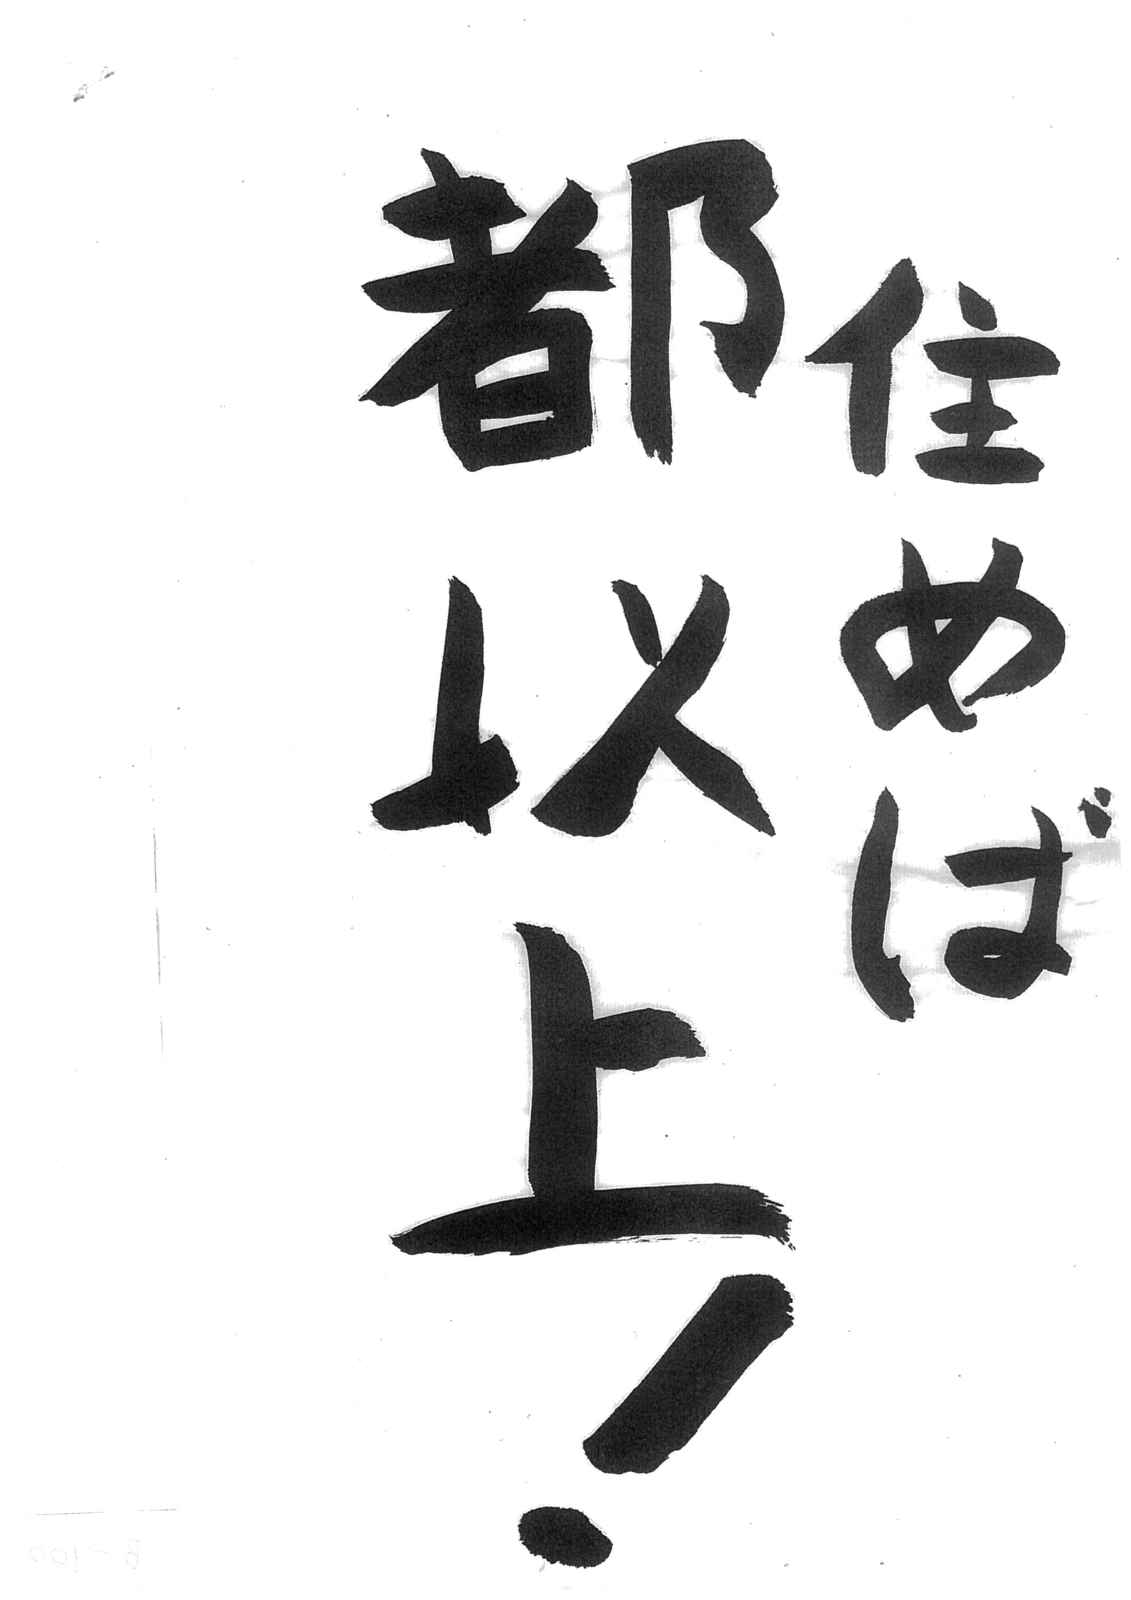 住めば
都以上!